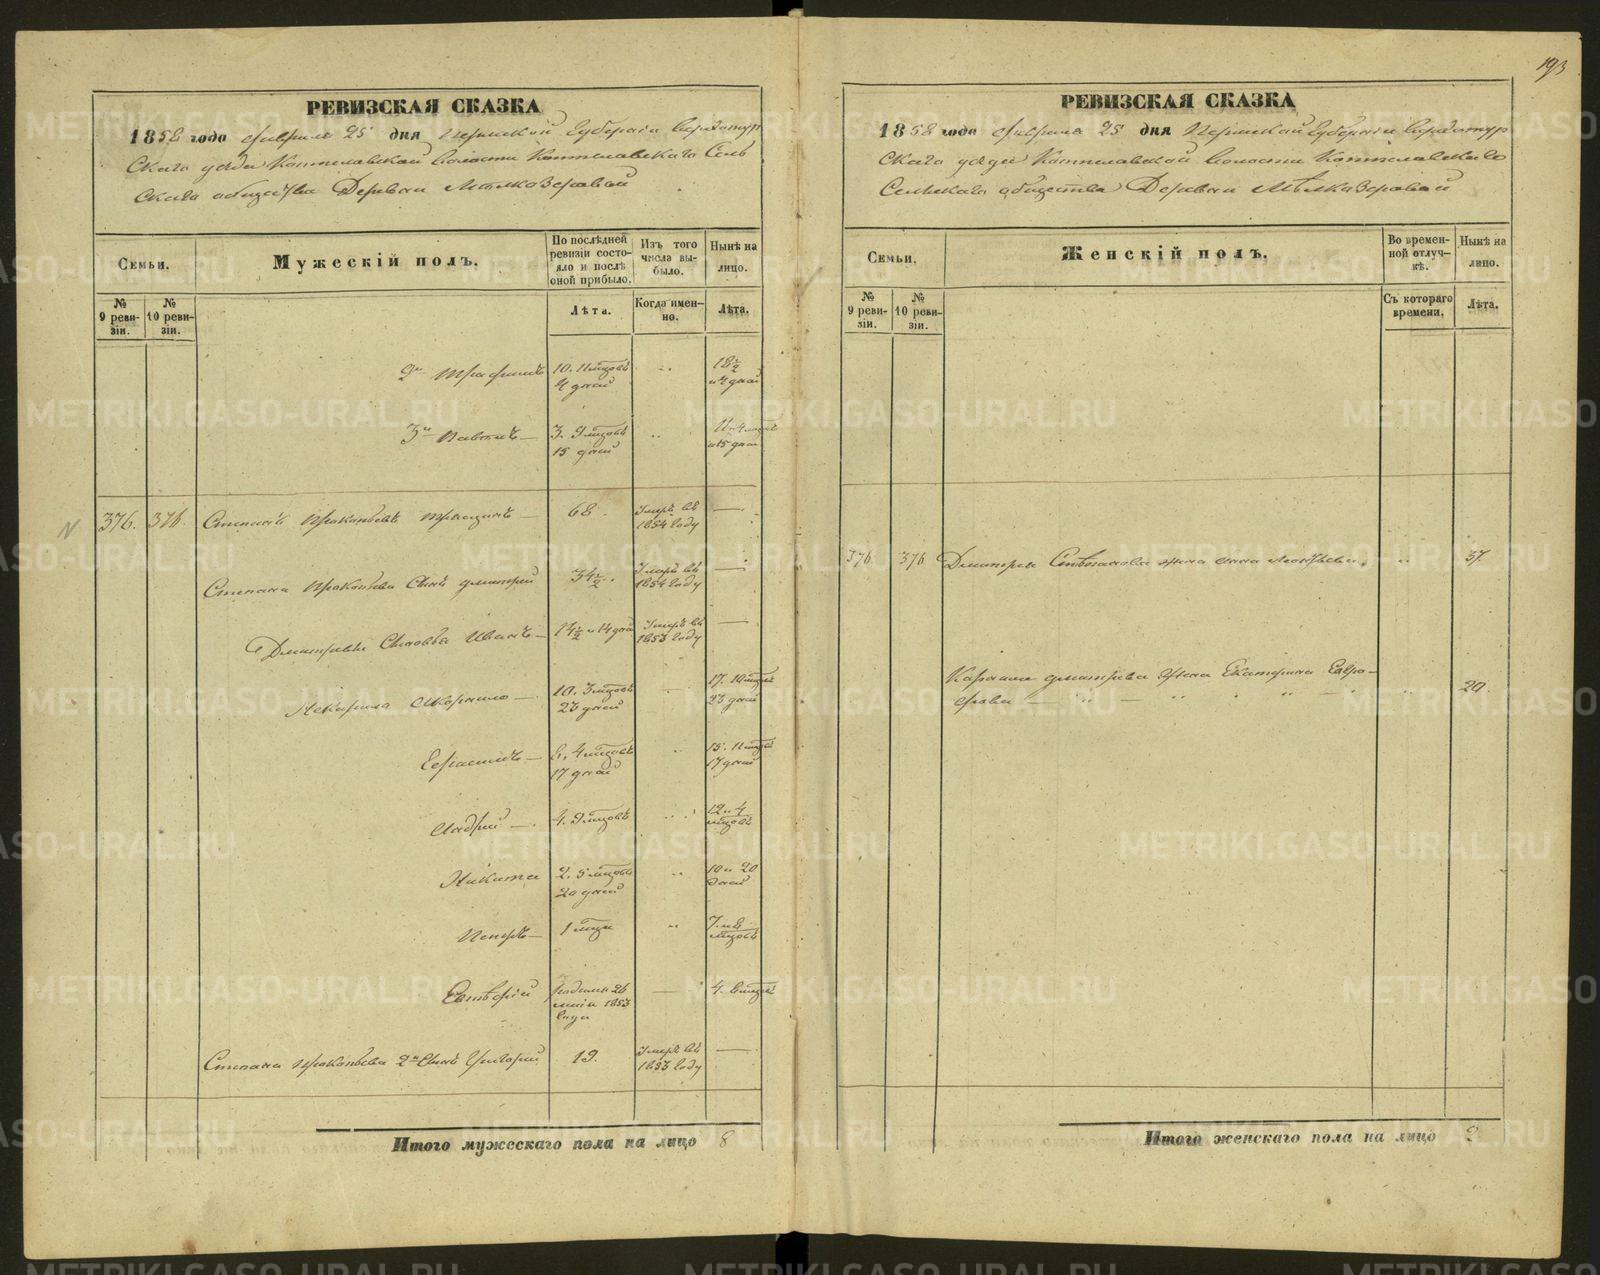 193
РЕВИЗСКАЯ СКАЗКА
1858 года февраля 25 дня Пермской Губернiи Верхотур
скаго уезда Коптеловской волости Коптеловскаго Сель
скаго общества Деревни Мелкозеровой
Семьи.
Мужескiй полъ.
По послѣдней ревизiи состояло и послѣ оной прибыло.
Изъ того числа выбыло.
Нынѣ на лицо.
№ 9 ревизiи.
№ 10 ревизiи.
Лѣта.
Когда именно.
Лѣта.
2й Трофимъ 10. 11 мцовъ 4 дней 18½ и 4 дней
3й Павелъ 3. 9 мцовъ 15 дней
376. 376. Степанъ Прокопьевъ 68. Умеръ въ 1854 году —
Степана Прокопьева сынъ Дмитрий 34½. Умеръ въ 1854 году —
Дмитрiя Сыновья Иванъ 14 дней Умеръ въ 1853 году —
10. 3 мцовъ 23 дней 17. 10 мцовъ 23 дней
4 мцовъ 17 дней 15. 11 мцовъ 17 дней
Андрей 4. 9 мцовъ 12 и 4 мцовъ
Никита 2. 5 мцовъ 20 дней 10 и 20 дней
Петръ 1 мцъ 7. и 8 мцовъ
Евтѣфiй 1853 года — 4.
Степана Прокопьева 2й Сынъ Григорий 19. Умеръ въ 1853 году —
Итого мужескаго пола на лицо 8
РЕВИЗСКАЯ СКАЗКА
1858 года февраля 25 дня Пермской Губернiи Верхотур
скаго уезда Коптеловской волости Коптеловскаго
Сельскаго общества Деревни Мѣлкозеровой
Семьи.
Женскiй полъ.
Во временной отлучкѣ.
Нынѣ на лицо.
№ 9 ревизiи.
№ 10 ревизiи.
Съ котораго времени.
Лѣта.
376 376 Дмитрiя Степанова жена Анна 37.
Дмитрiева Жена Екатерина Евдо-
20.
Итого женскаго пола на лицо 2
METRIKI.GASO-URAL.RU